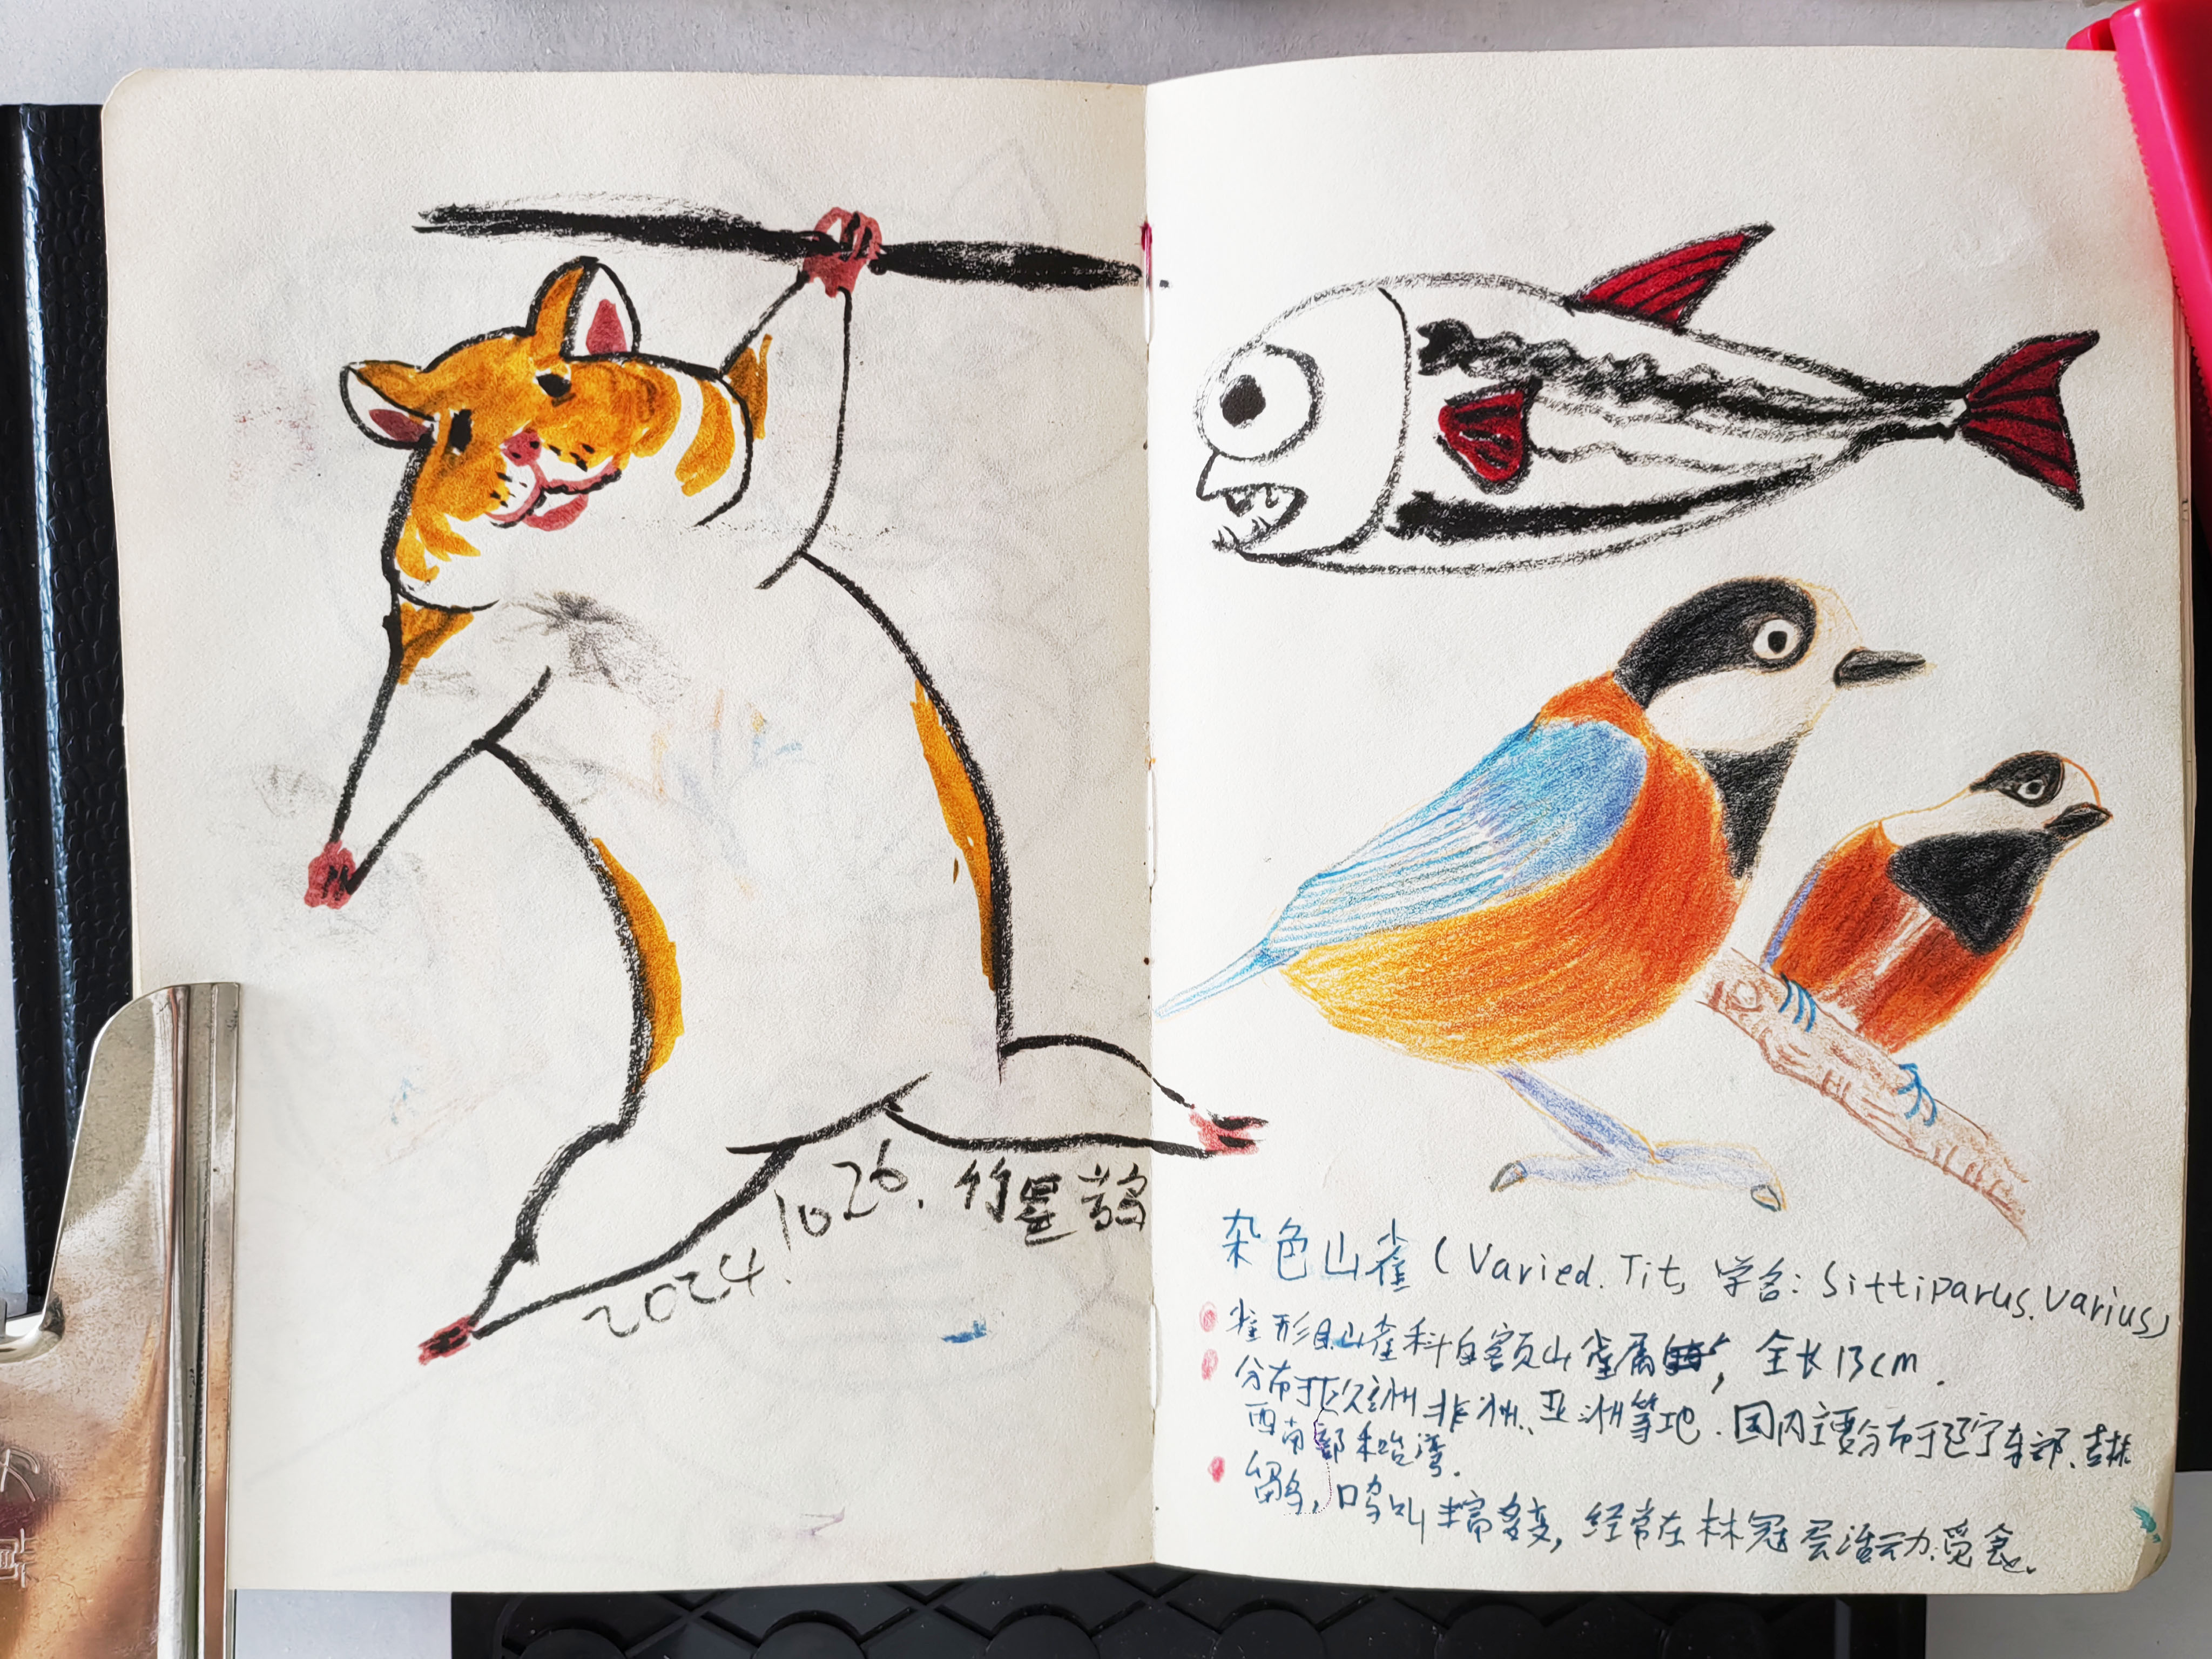 2024.1026.竹星鹊
杂色山雀(Varied.Tit,学名:Sittiparus.varius)
雀形目山雀科白额山雀属,全长13cm.
分布于欧洲、非洲、亚洲等地.国内主要分布于辽宁东部、吉林
西南部和台湾.
留鸟,鸣叫丰富多变,经常在林冠层活动觅食.